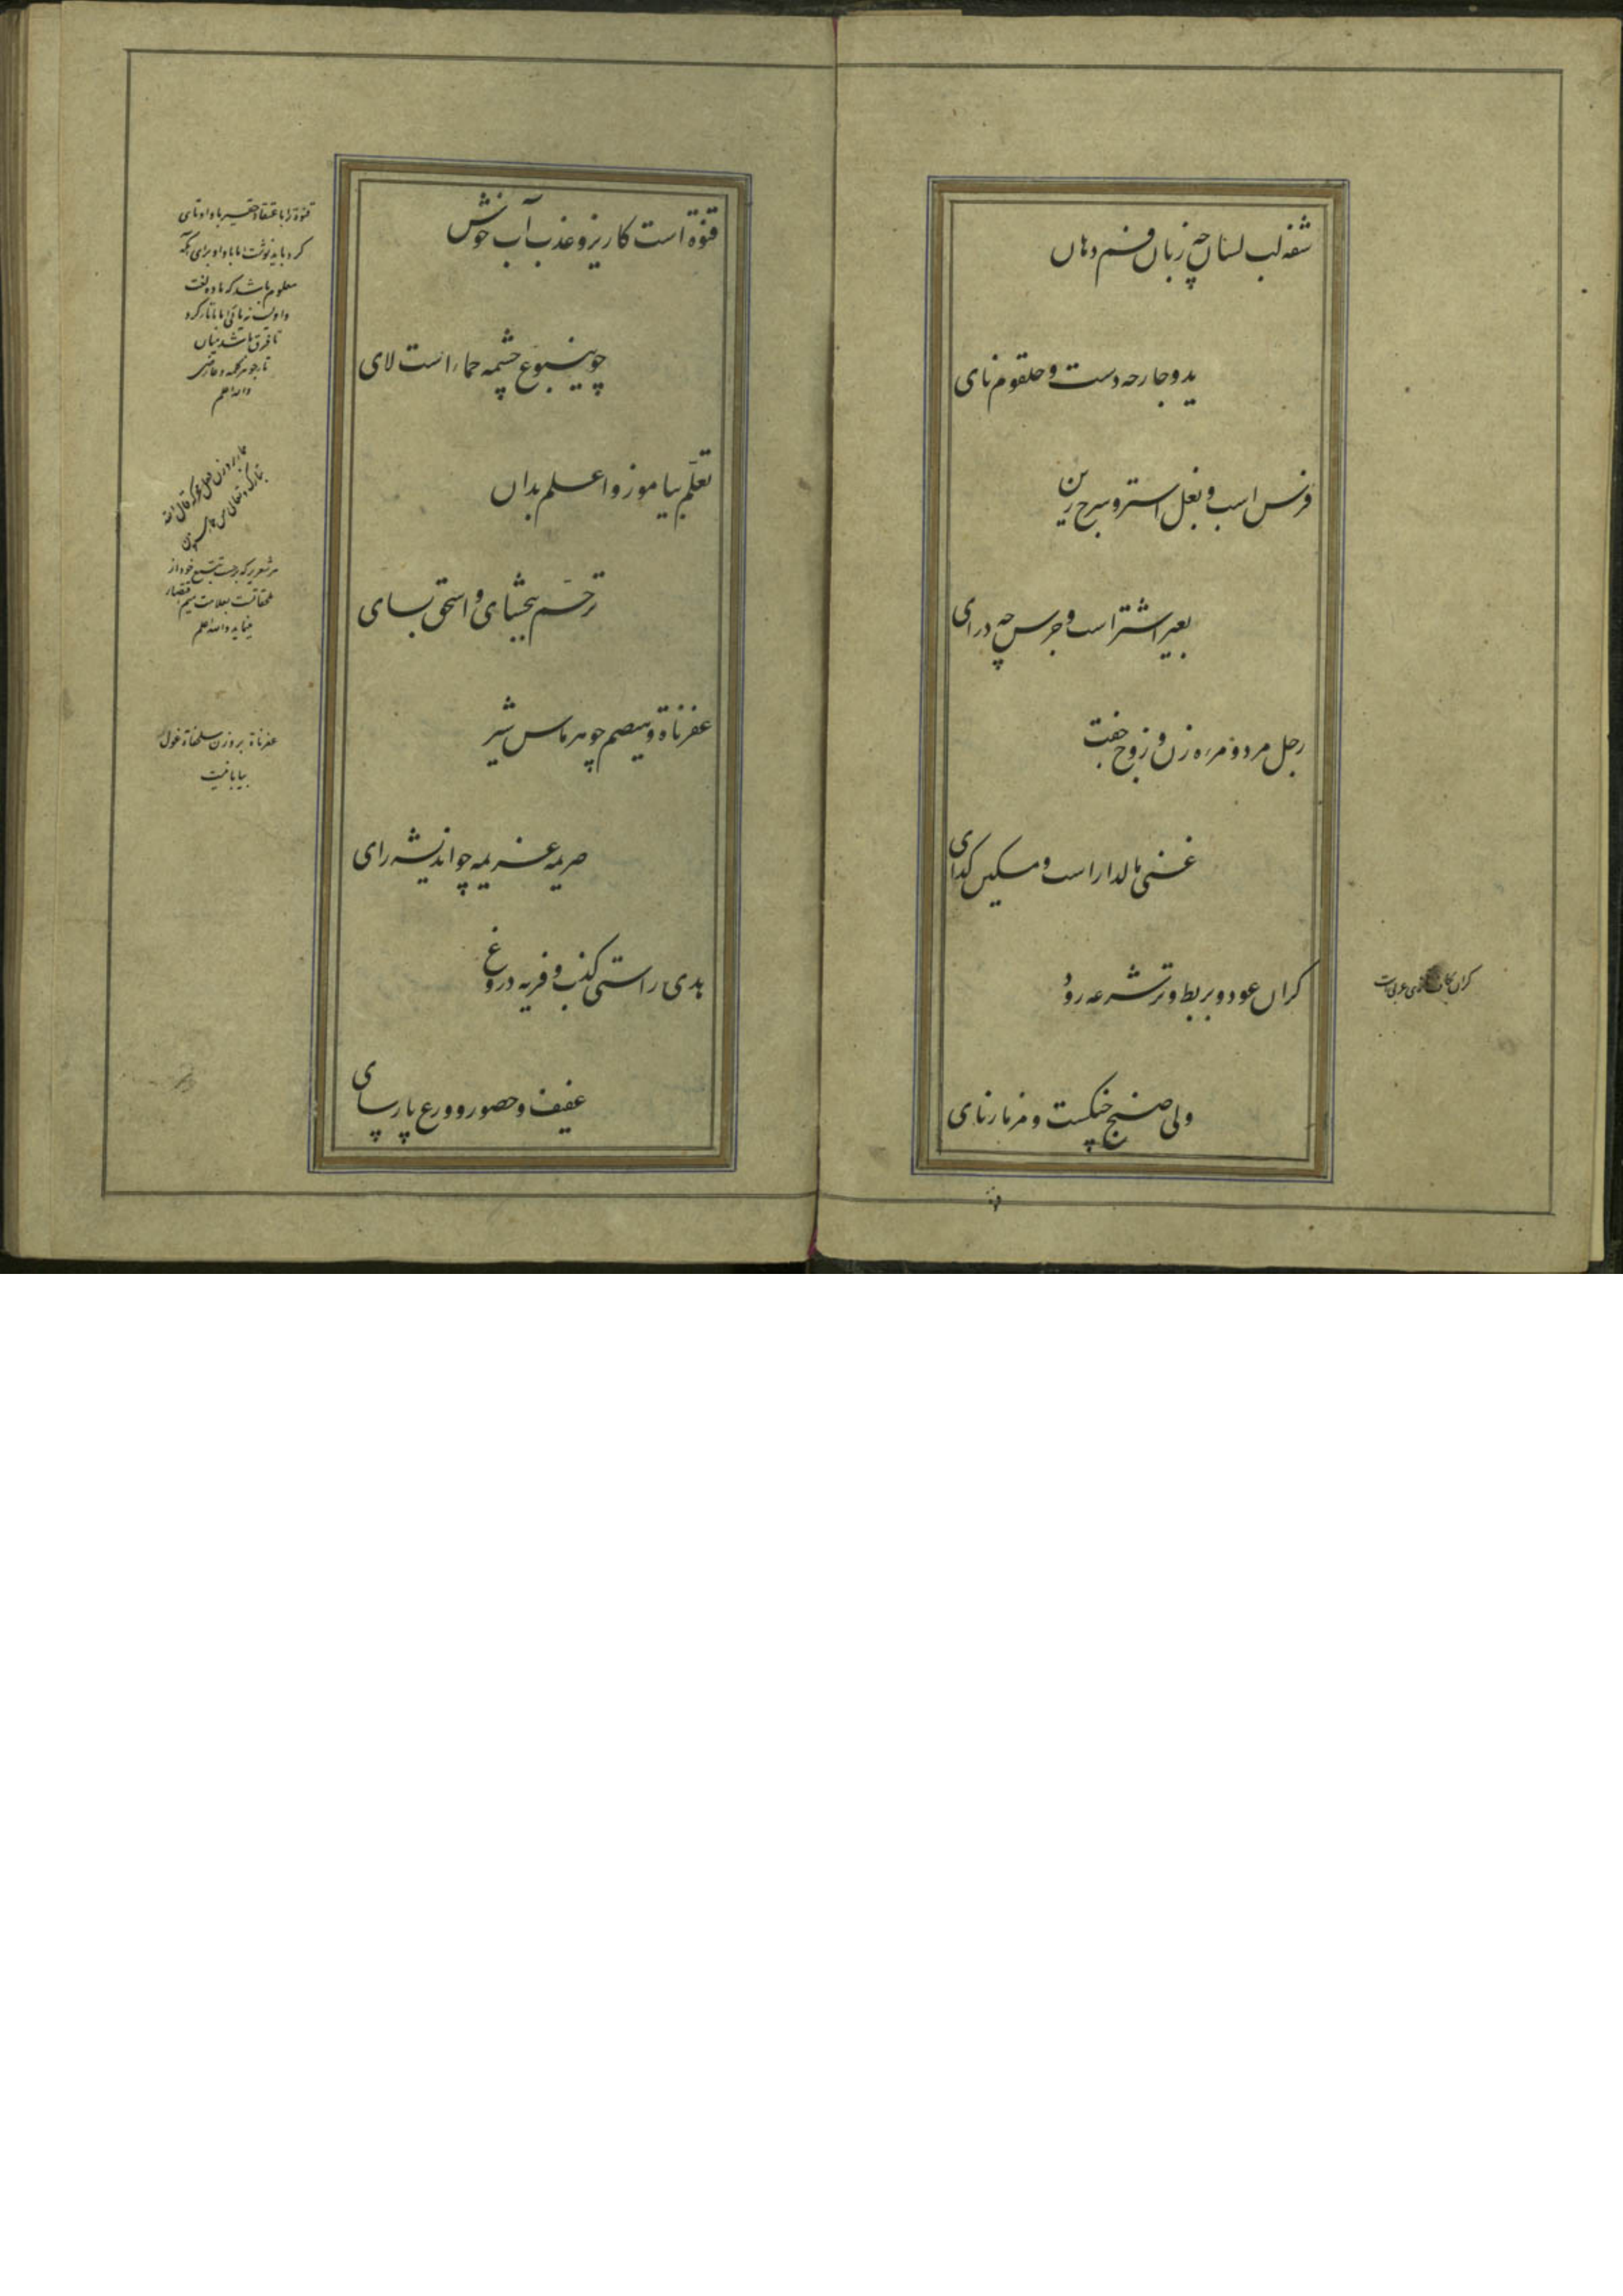 شفه لب لسان چه زبان و فم دهان
ید و جارحه دست و حلقوم نای
فرس اسب و بغل استر و سرج زین
بعیر اشتر است و جرس چه درای
رجل مرد و مرءه زن و زوج جفت
غنی مالدار است و مسکین گدای
کران عود و بربط وتر شرعه رود
ولی صنج چنگست و مزمار نای
کران
قنوة است کاریز و عذب آب خوش
چو ینبوع چشمه حماء است لای
تعلّم بیاموز و اعلم بدان
ترحّم ببخشای و اسحق بسای
عفرناة و بیصم چو هرماس شیر
صریمه عزیمه چو اندیشه رای
هدی راستی کذب و فریه دروغ
عفیف و حصور و ورع پارسای
قنوة را باعتقاد حقیر با واو تای
کرد باید نوشت اما با واو برای آنکه
معلوم باشد که ماده لغت
تا فرق باشد میان
والله اعلم
بر وزن
تبارک و تعالی من
والله اعلم
عفرناة بر وزن سلحفاة غول
بیابانیست